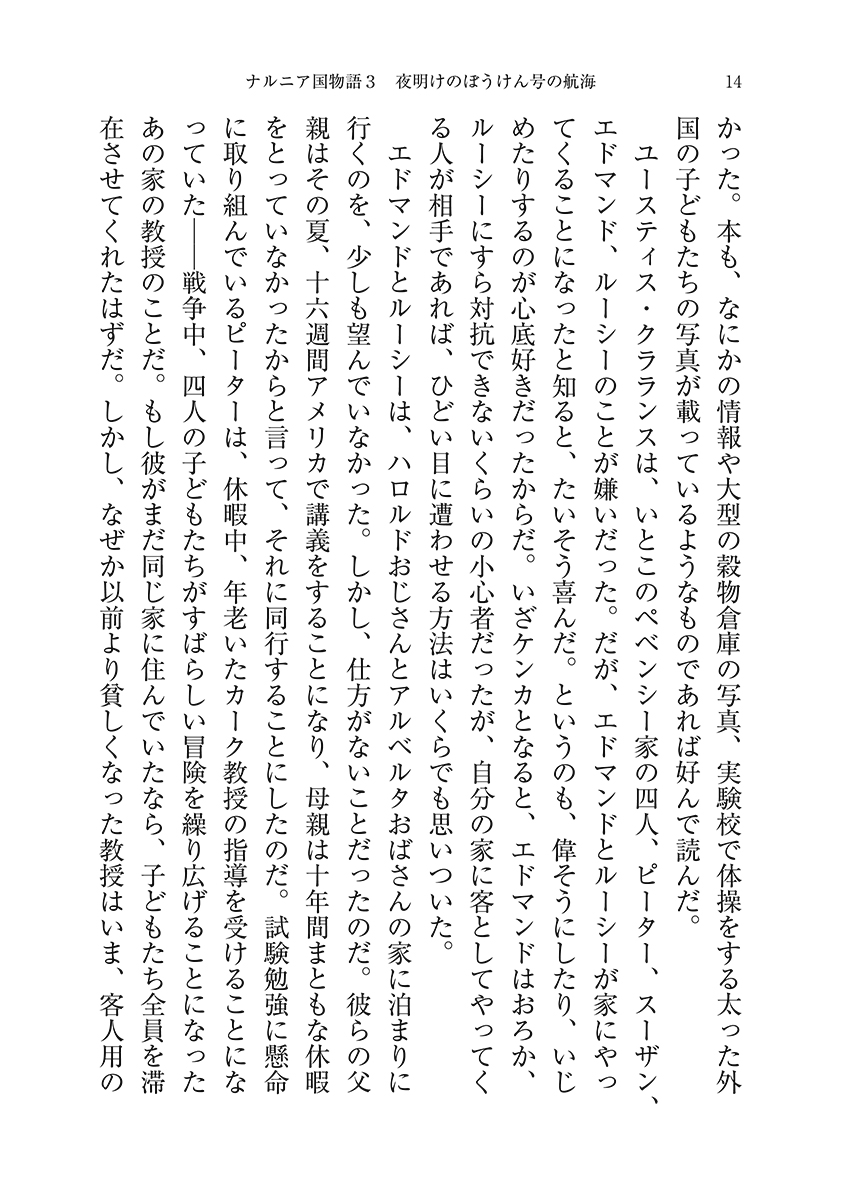 ナルニア国物語3　夜明けのぼうけん号の航海
14
かった。本も、なにかの情報や大型の穀物倉庫の写真、実験校で体操をする太った外
国の子どもたちの写真が載っているようなものであれば好んで読んだ。
　ユースティス・クラランスは、いとこのペベンシー家の四人、ピーター、スーザン、
エドマンド、ルーシーのことが嫌いだった。だが、エドマンドとルーシーが家にやっ
てくることになったと知ると、たいそう喜んだ。というのも、偉そうにしたり、いじ
めたりするのが心底好きだったからだ。いざケンカとなると、エドマンドはおろか、
ルーシーにすら対抗できないくらいの小心者だったが、自分の家に客としてやってく
る人が相手であれば、ひどい目に遭わせる方法はいくらでも思いついた。
　エドマンドとルーシーは、ハロルドおじさんとアルベルタおばさんの家に泊まりに
行くのを、少しも望んでいなかった。しかし、仕方がないことだったのだ。彼らの父
親はその夏、十六週間アメリカで講義をすることになり、母親は十年間まともな休暇
をとっていなかったからと言って、それに同行することにしたのだ。試験勉強に懸命
に取り組んでいるピーターは、休暇中、年老いたカーク教授の指導を受けることにな
っていた――戦争中、四人の子どもたちがすばらしい冒険を繰り広げることになった
あの家の教授のことだ。もし彼がまだ同じ家に住んでいたなら、子どもたち全員を滞
在させてくれたはずだ。しかし、なぜか以前より貧しくなった教授はいま、客人用の